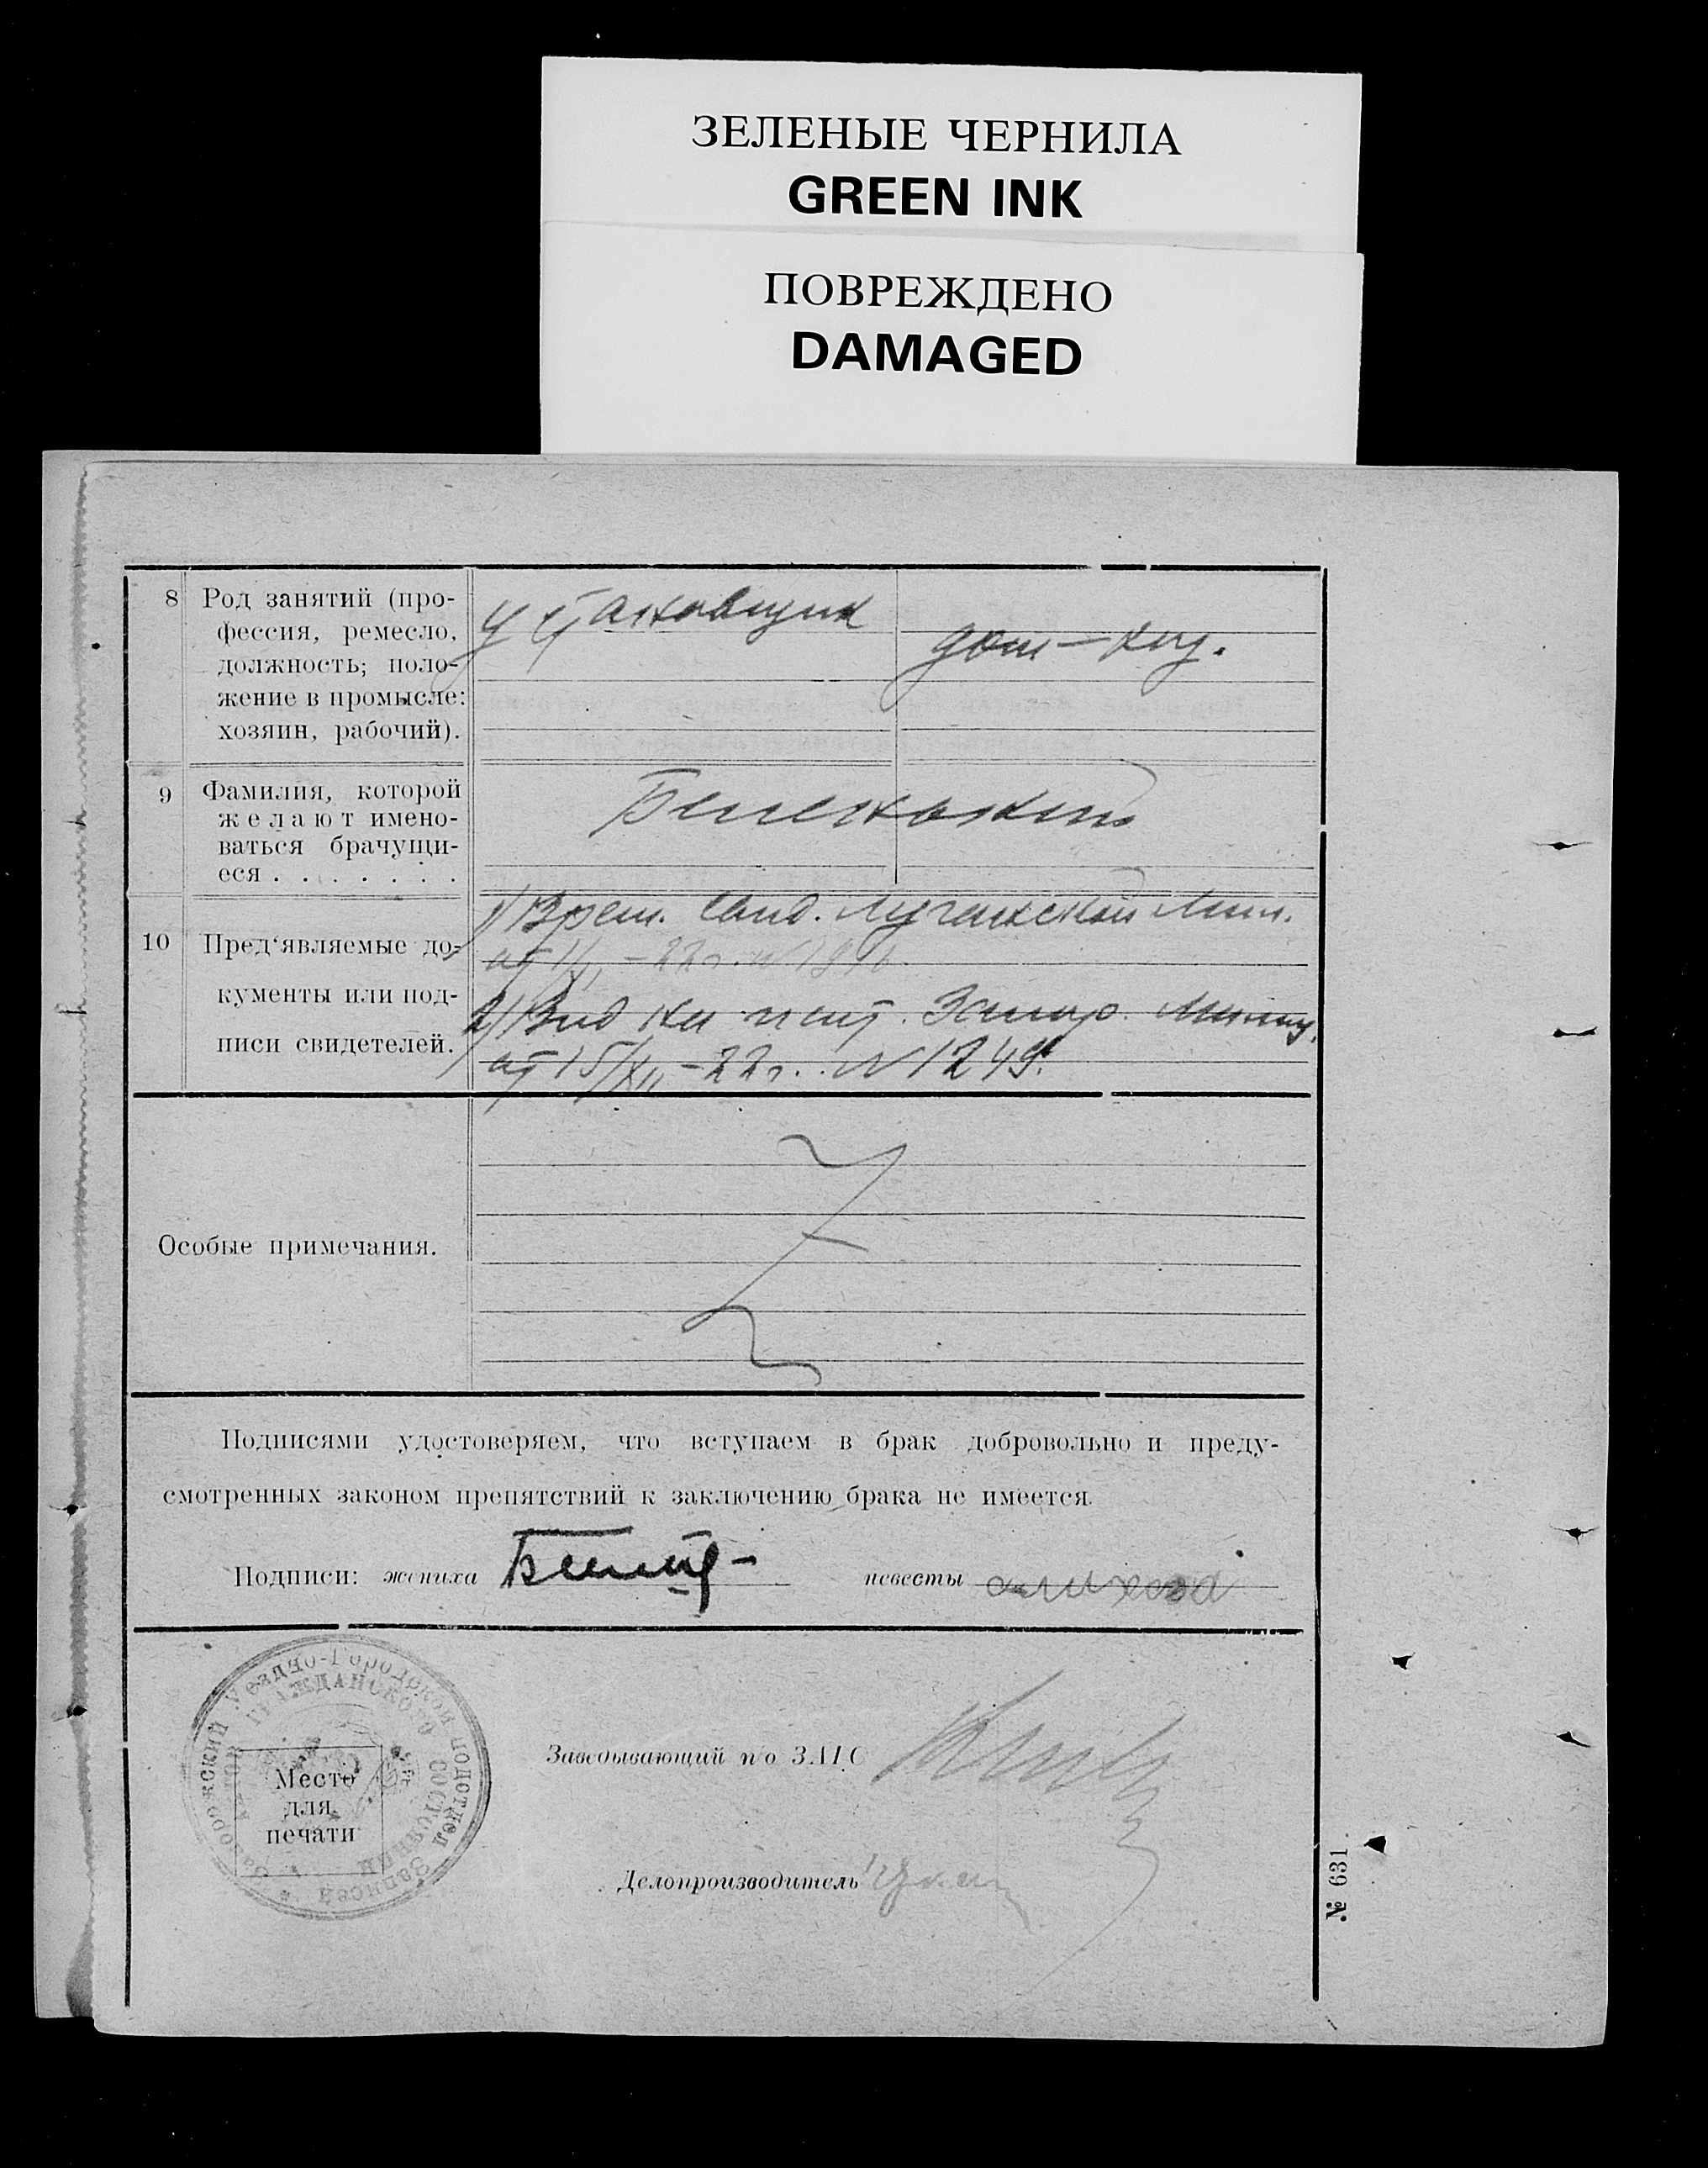 ЗЕЛЕНЫЕ ЧЕРНИЛА
GREEN INK
ПОВРЕЖДЕНО
DAMAGED
8 Род занятий (про-
фессия, ремесло,
должность; поло-
жение в промысле:
хозяин, рабочий).
Установщик
дом-хоз.
9 Фамилия, которой
желают имено-
ваться брачущи-
еся . . . . . . .
10 Пред'являемые до-
кументы или под-
писи свидетелей.
1) Врем. Луганской Мил.
от -22 г. №
2) Вид на жит. Запор. Милиц.
от 15/XII -22 г. № 1249.
Особые примечания.
Подписями удостоверяем, что вступаем в брак добровольно и преду-
смотренных законом препятствий к заключению брака не имеется.
Подписи: жениха невесты
Запорожский Уездно-Городской подотдел Записей
Гражданского состояния
Место
для
печати
Заведывающий п/о ЗАГС
Делопроизводитель
№ 631.